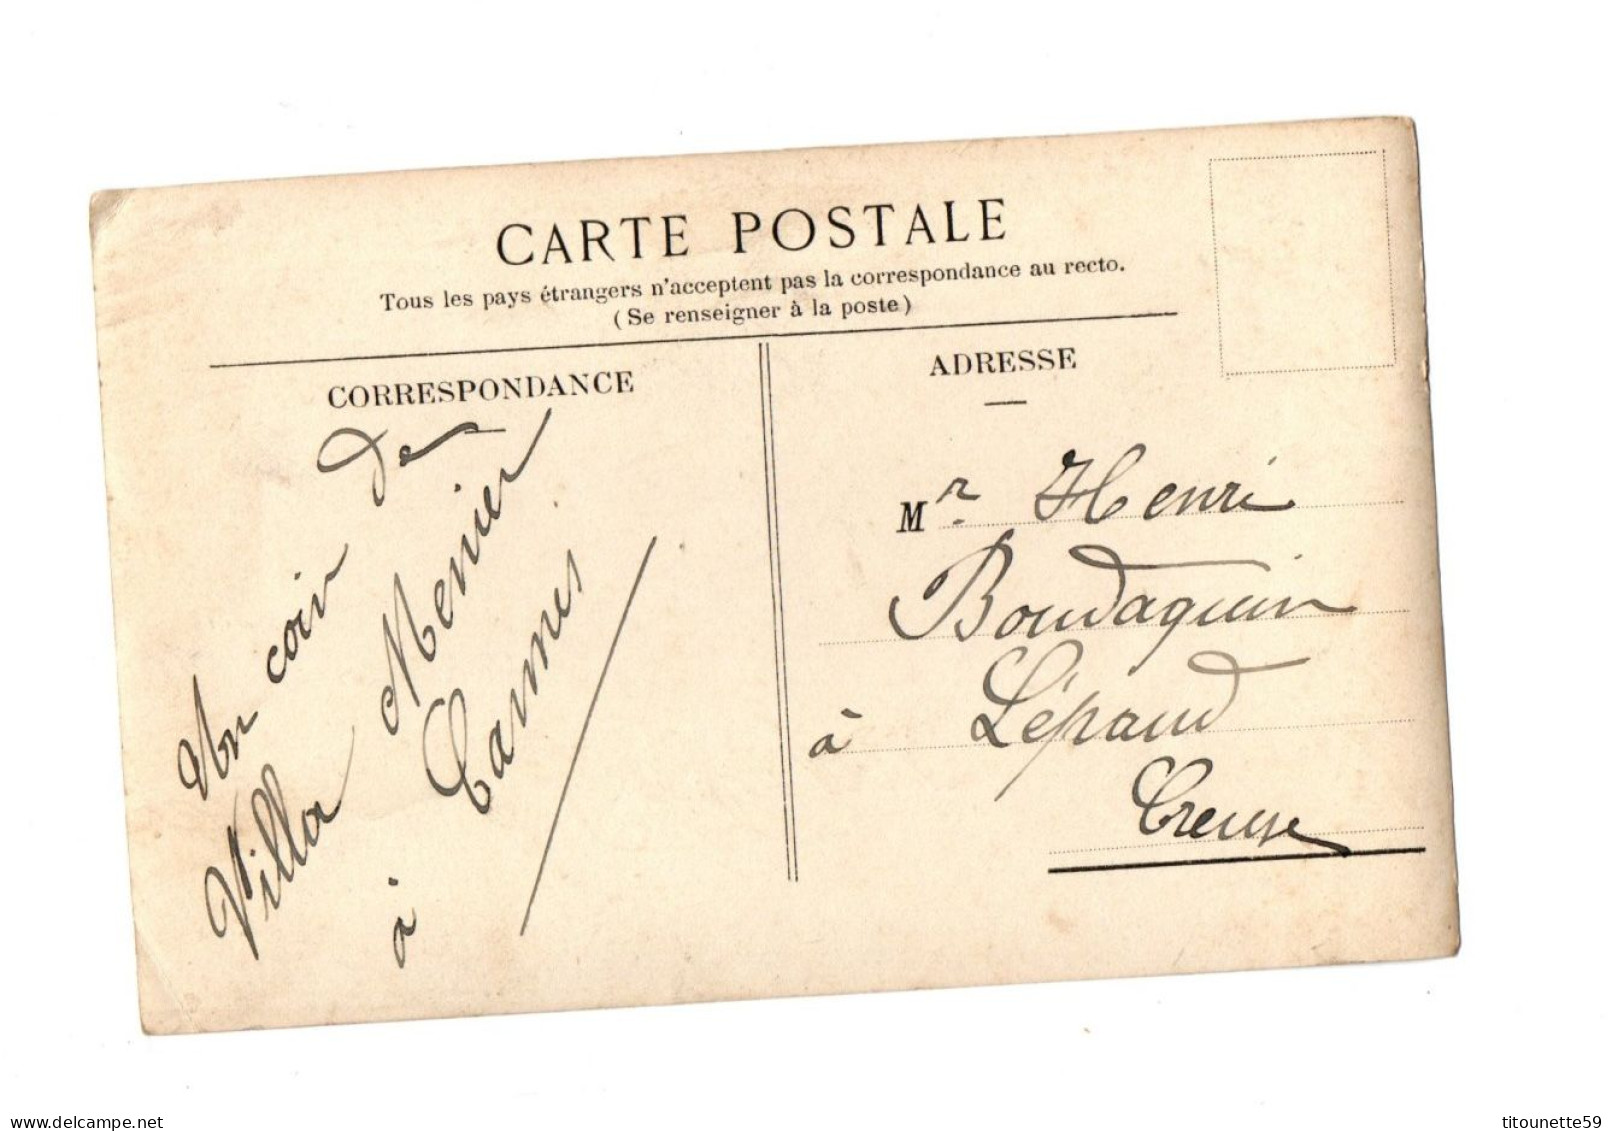 CARTE POSTALE
Tous les pays étrangers n'acceptent pas la correspondance au recto.
(Se renseigner à la poste)
CORRESPONDANCE
ADRESSE
Un coin de
Villa Menier
à Cannes
Mr. Henri
Boudaquin
à Lépaud
Creuse
titounette59
delcampe.net